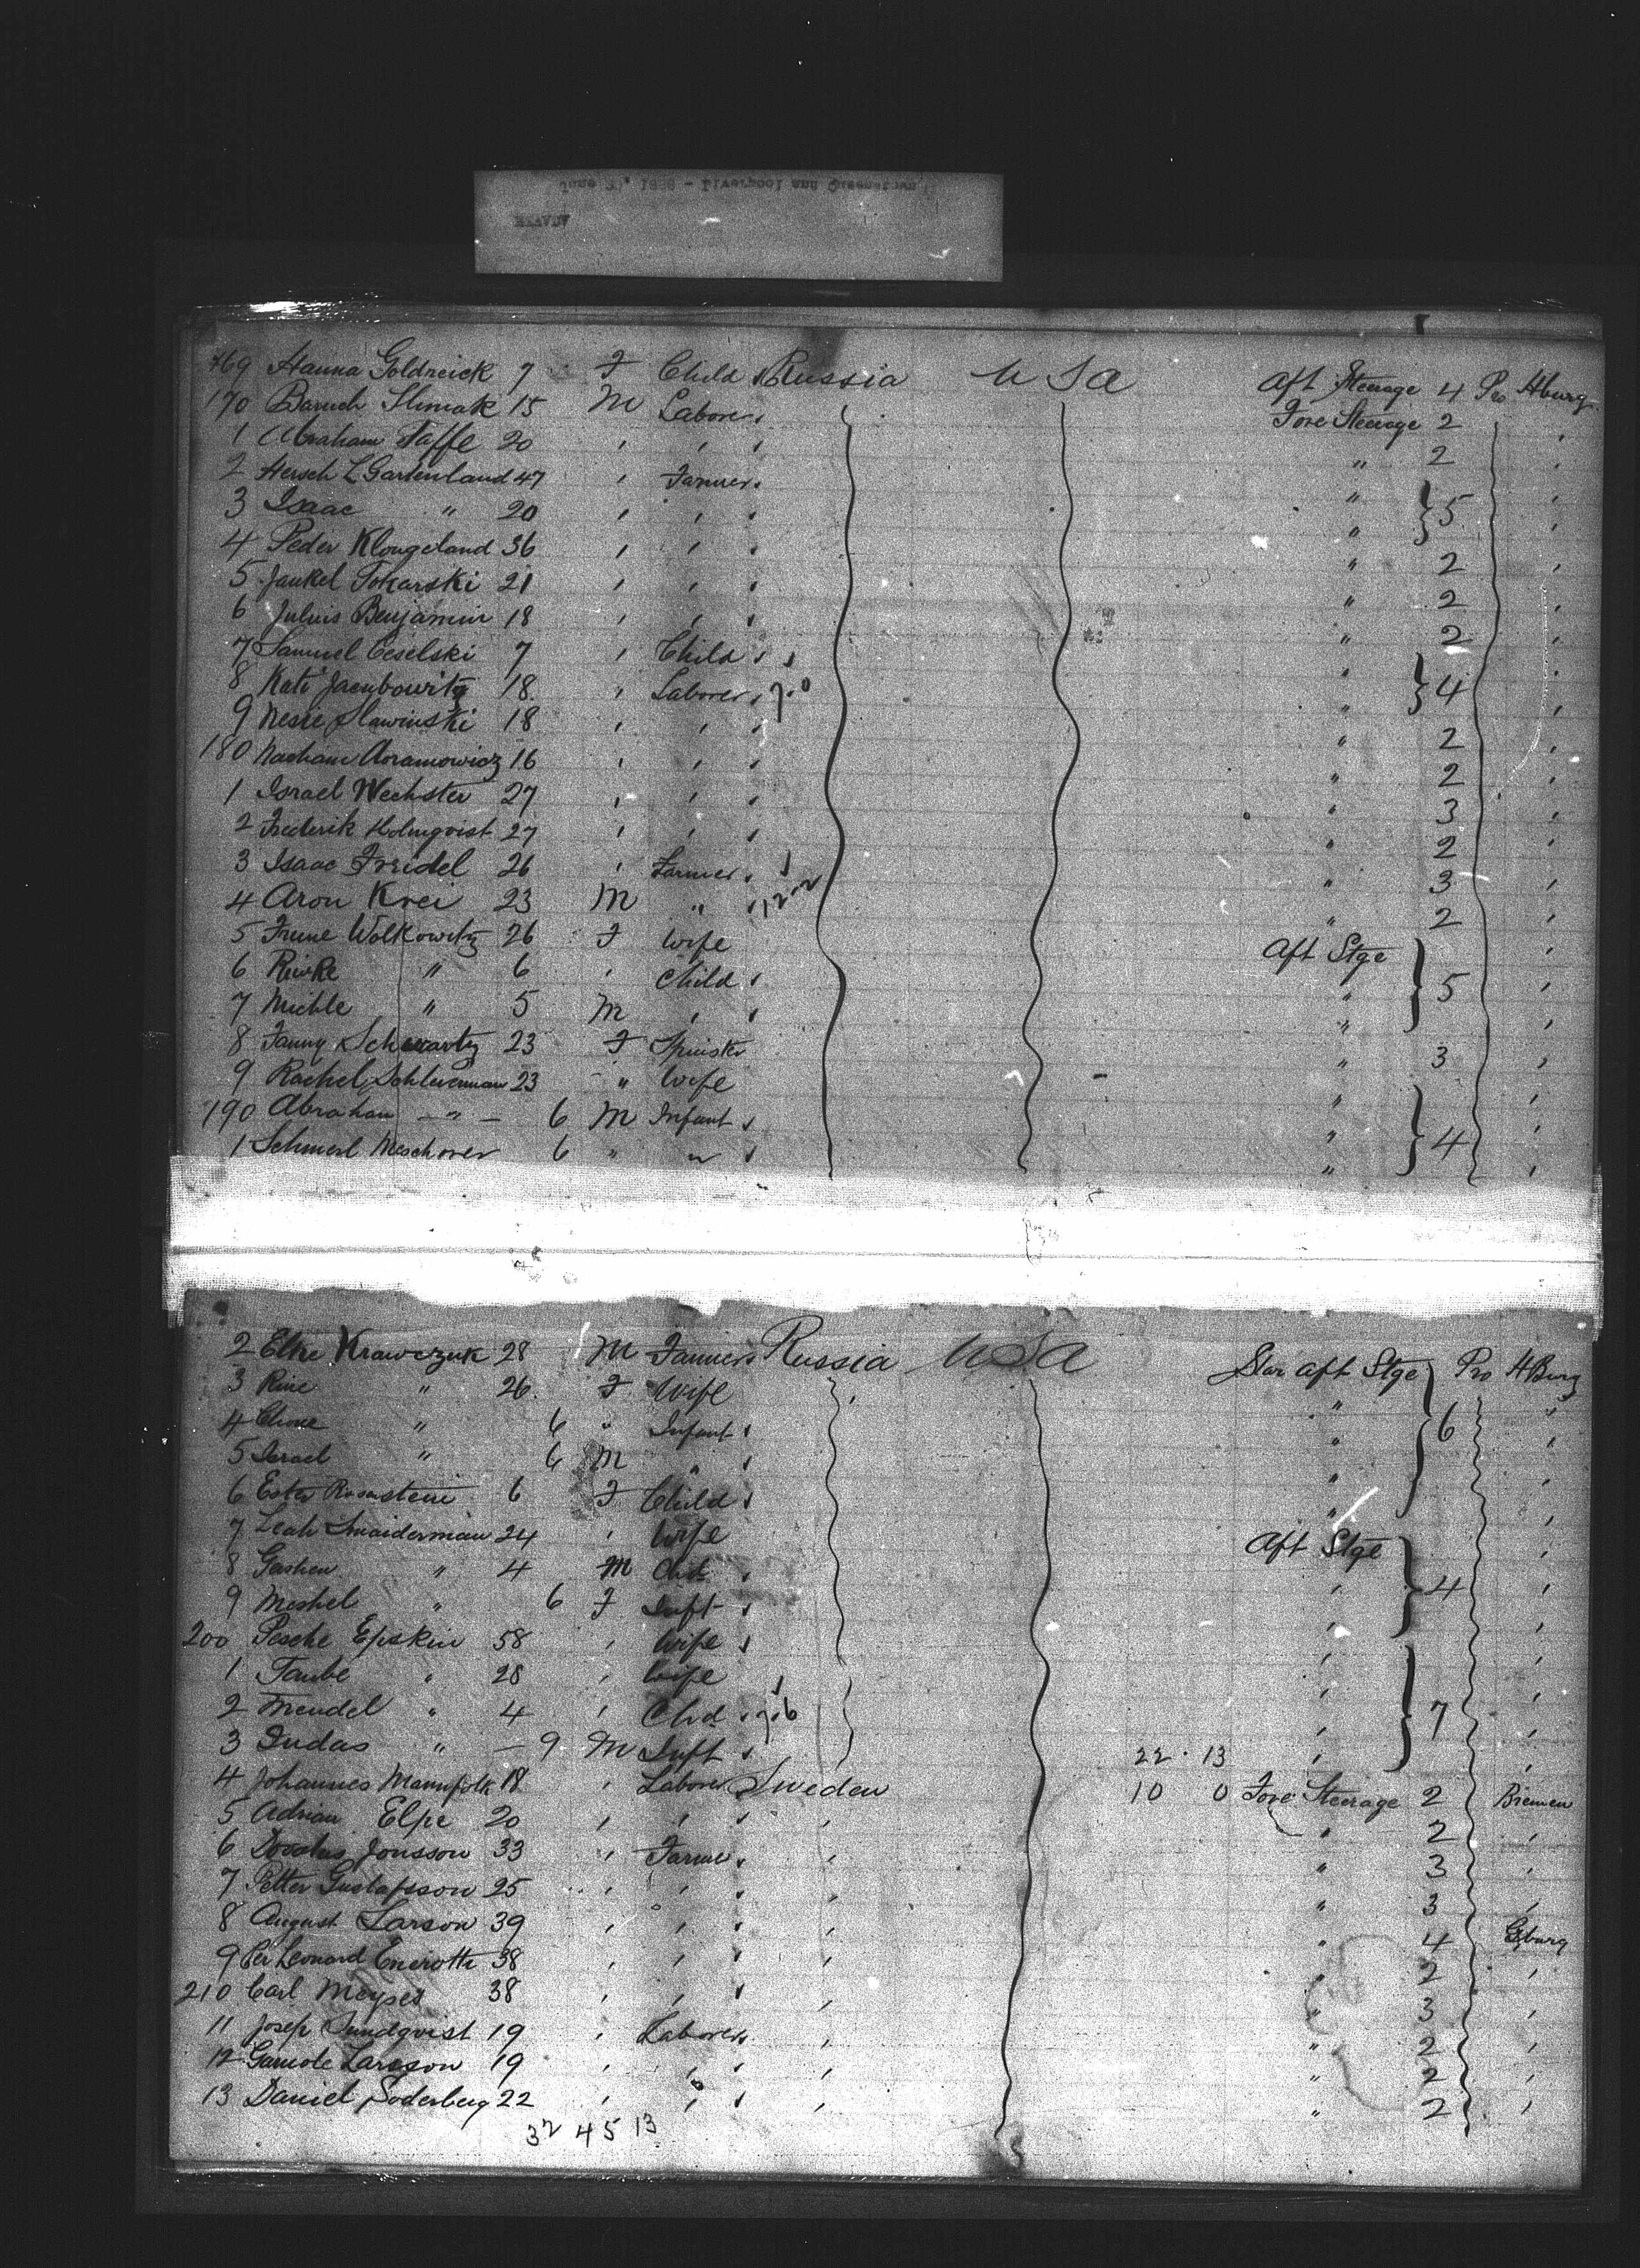 169 Hanna Goldreick 7 F Child Russia USA Aft Steerage 4 Pro Hburg
170 Baruch Slimak 15 M Laborer Fore Steerage 2
1 Abraham Taffe 20 " 2
2 Hersch L Gartenland 47 Farmer "
3 Isaac " 20 " 5
4 Peder Klougeland 36 " 2
5 Jankel Tokarski 21 " 2
6 Julius Benjamin 18 " 2
7 Samuel Ceselski 7 Child "
8 Kate Jacubowitz 18 Laborer " 4
9 Nesre Slawinski 18 " 2
180 Nacham Abramowicz 16 " 2
1 Israel Wechster 27 " 3
2 Frederik Holmqvist 27 " 2
3 Isaac Freidel 26 Farmer " 3
4 Aron Krei 23 M " " 2
5 Frume Wolkowitz 26 F Wife Aft Stge
6 Riwke " 6 Child " 5
7 Michle " 5 M "
8 Fanny Schwartz 23 F Spinster " 3
9 Rachel Schleuerman 23 " Wife "
190 Abraham — " — 6 M Infant " 4
1 Schmerl Meschorer 6 " " "
2 Elke Krawczuk 28 M Farmer Russia USA Star Aft Stge Pro HBurg
3 Rive " 26 F Wife " "
4 Chone " 6 " Infant " 6
5 Israel " 6 M " "
6 Ester Rosenstein 6 F Child "
7 Leah Snaiderman 24 Wife Aft Stge
8 Gershen " 4 M Chd 4
9 Meshel " 6 F Inft
200 Pesche Epskin 58 Wife
1 Taube " 28 Wife
2 Mendel " 4 Chd 7
3 Judas " — 9 M Inft 22 13
4 Johannes Mannfolk 18 Laborer Sweden 10 0 Fore Steerage 2 Bremen
5 Adrian Elpe 20 " 2
6 Jonsson 33 Farmer " 3
7 Petter Gustafsson 25 " 3
8 August Larson 39 " 4 Gburg
9 Per Leonard Eneroth 38 " 2
210 Carl Meyses 38 " 3
11 Josep Sundqvist 19 Laborer " 2
12 Larsson 19 " 2
13 Daniel Soderberg 22 " 2
32 45 13